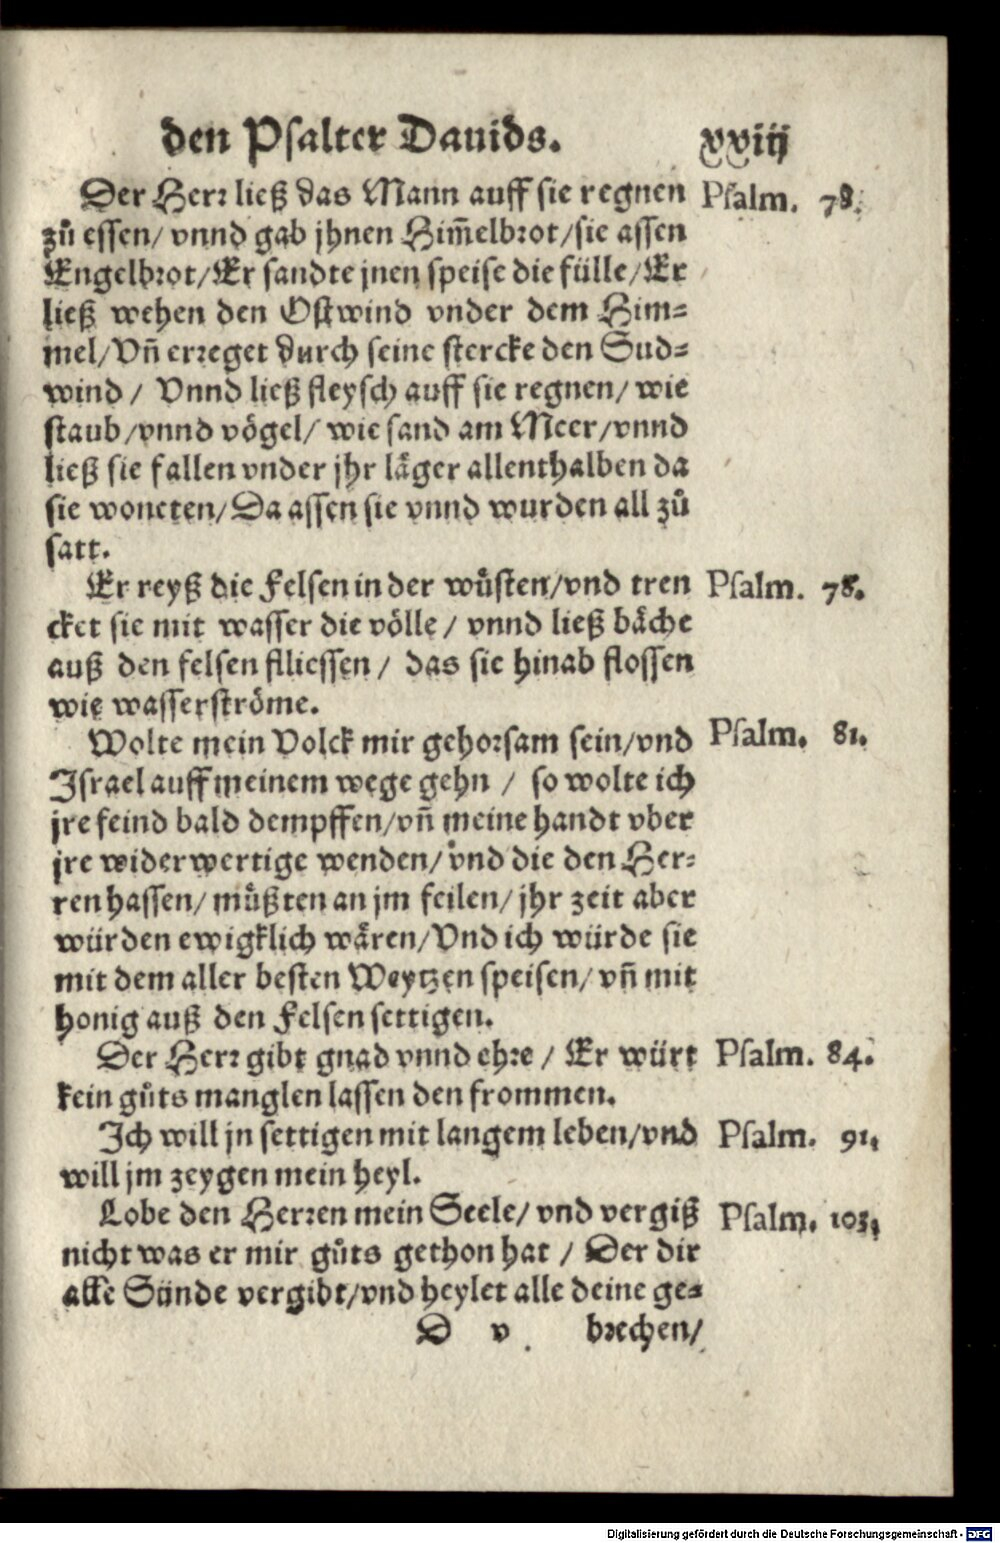 den Psalter Dauids. xxiij
Der Herr ließ das Mann auff sie regnen Psalm. 78.
zů essen/ vnnd gab jhnen Him̃elbrot/sie assen
Engelbrot/Er sandte jnen speise die fülle/Er
ließ wehen den Ostwind vnder dem Him=
mel/Vñ erreget durch seine stercke den Sud=
wind / Vnnd ließ fleysch auff sie regnen/ wie
staub/vnnd vögel/ wie sand am Meer/vnnd
ließ sie fallen vnder jhr läger allenthalben da
sie woneten/Da assen sie vnnd wurden all zů
satt.
Er reyß die Felsen in der wůsten/vnd tren Psalm. 78.
cket sie mit wasser die völle / vnnd ließ bäche
auß den felsen fliessen / das sie hinab flossen
wie wasserströme.
Wolte mein Volck mir gehorsam sein/vnd Psalm. 81.
Israel auff meinem wege gehn / so wolte ich
jre feind bald dempffen/vñ meine handt vber
jre widerwertige wenden/ vnd die den Her=
ren hassen/ můßten an jm feilen/ jhr zeit aber
würden ewigklich wären/Vnd ich würde sie
mit dem aller besten Weytzen speisen/ vñ mit
honig auß den Felsen settigen.
Der Herr gibt gnad vnnd ehre / Er würt Psalm. 84.
kein gůts manglen lassen den frommen.
Ich will jn settigen mit langem leben/vnd Psalm. 91.
will jm zeygen mein heyl.
Lobe den Herren mein Seele/ vnd vergiß Psalm. 103.
nicht was er mir gůts gethon hat / Der dir
alle Sünde vergibt/vnd heylet alle deine ge=
D v brechen/
Digitalisierung gefördert durch die Deutsche Forschungsgemeinschaft - DFG